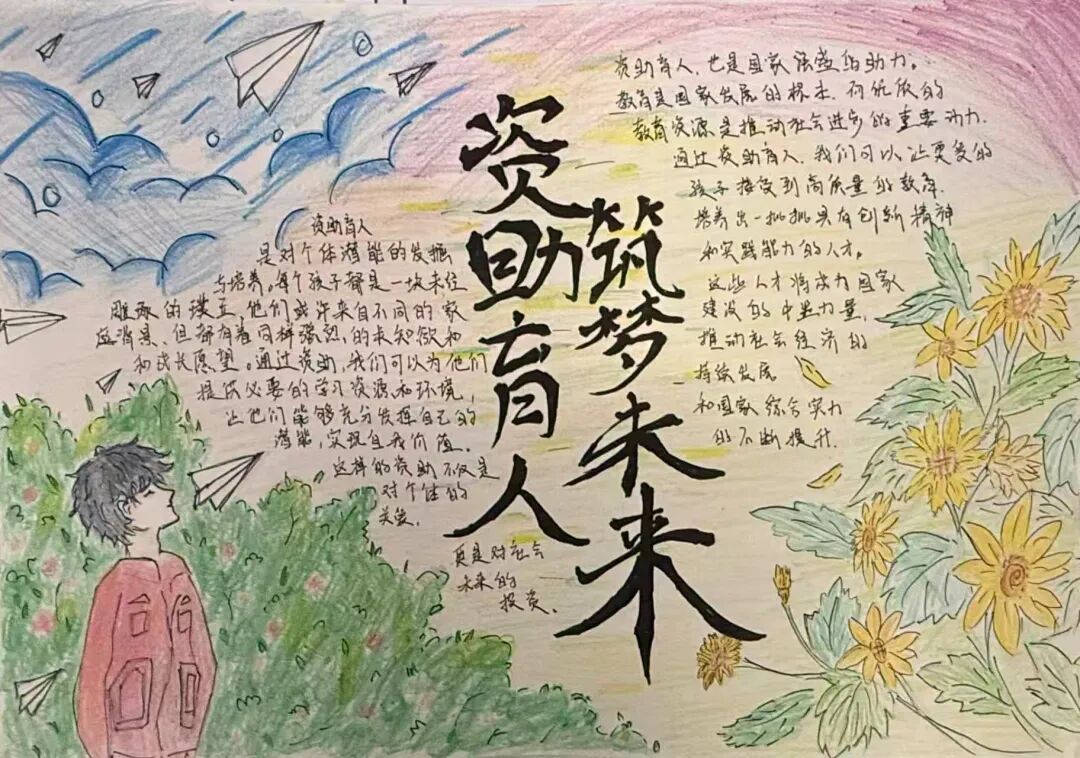 资助育人
筑梦未来
资助育人
是对个体潜能的发掘
与培养。每个孩子都是一块未经
雕琢的璞玉,他们或许来自不同的家
庭背景、但都有着同样强烈的求知欲和
和成长愿望。通过资助,我们可以为他们
提供必要的学习资源和环境,
让他们能够充分发挥自己的
潜能,实现自我价值。
这样的资助不仅是
对个体的
关爱,
更是对社会
未来的
投资。
资助育人,也是国家强盛的助力。
教育是国家发展的根本,而优质的
教育资源是推动社会进步的重要动力.
通过资助育人,我们可以让更多的
孩子接受到高质量的教育,
培养出一批批具有创新精神
和实践能力的人才。
这些人才将成为国家
建设的中坚力量,
推动社会经济的
持续发展
和国家综合实力
的不断提升.